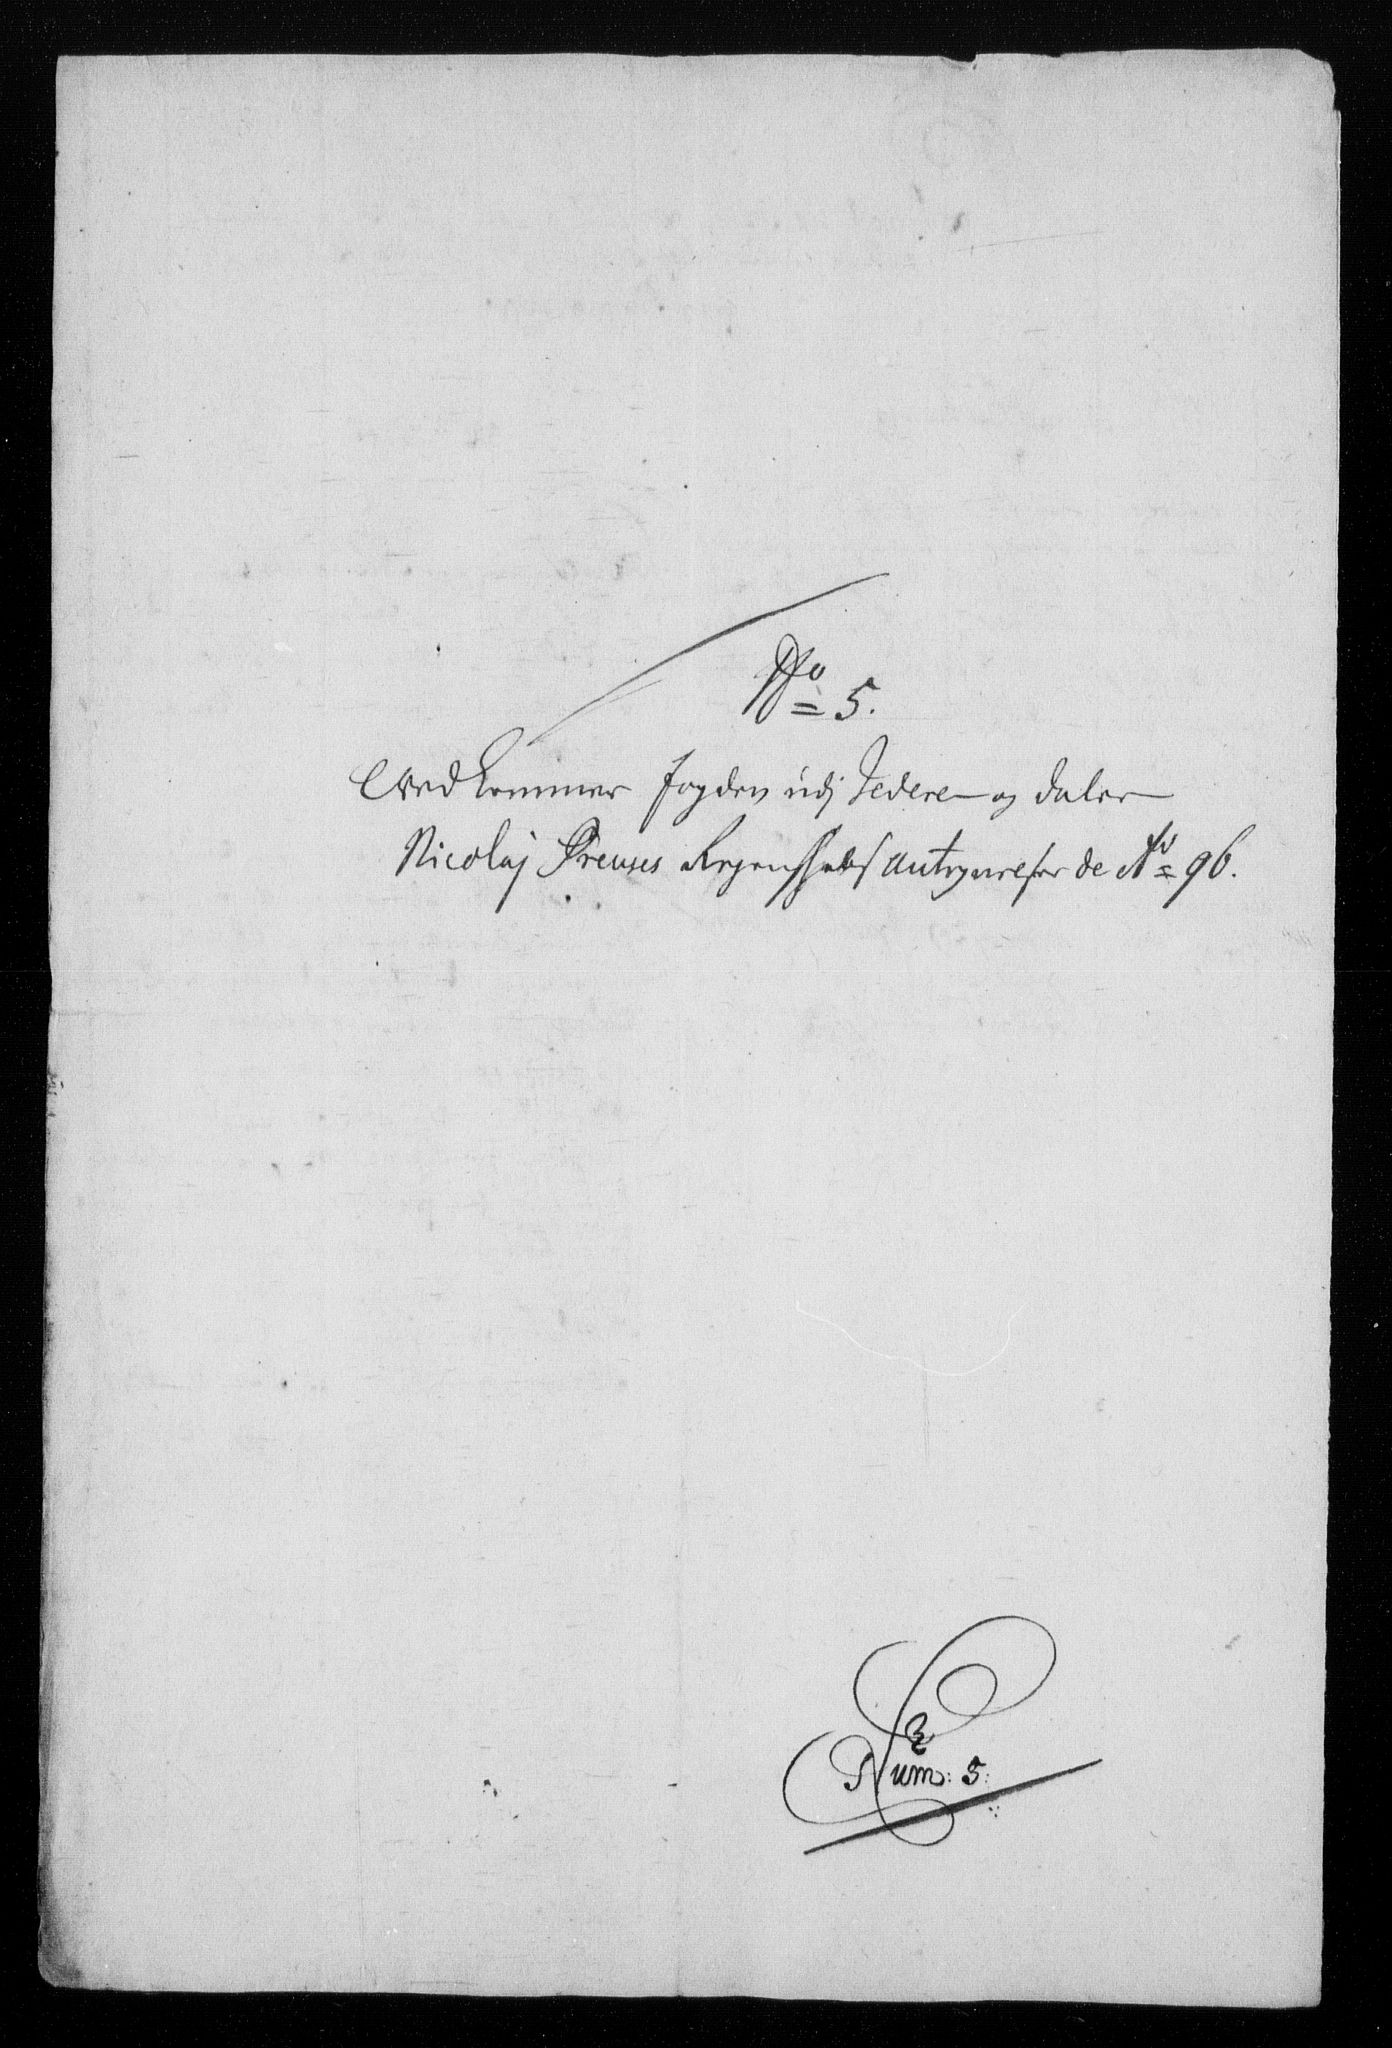 No 5.
Wed kommer fogden udj Jedere og daler
Nicolaj Preuses Regenskabs antegnelser de Ao 96.
Num: 5: